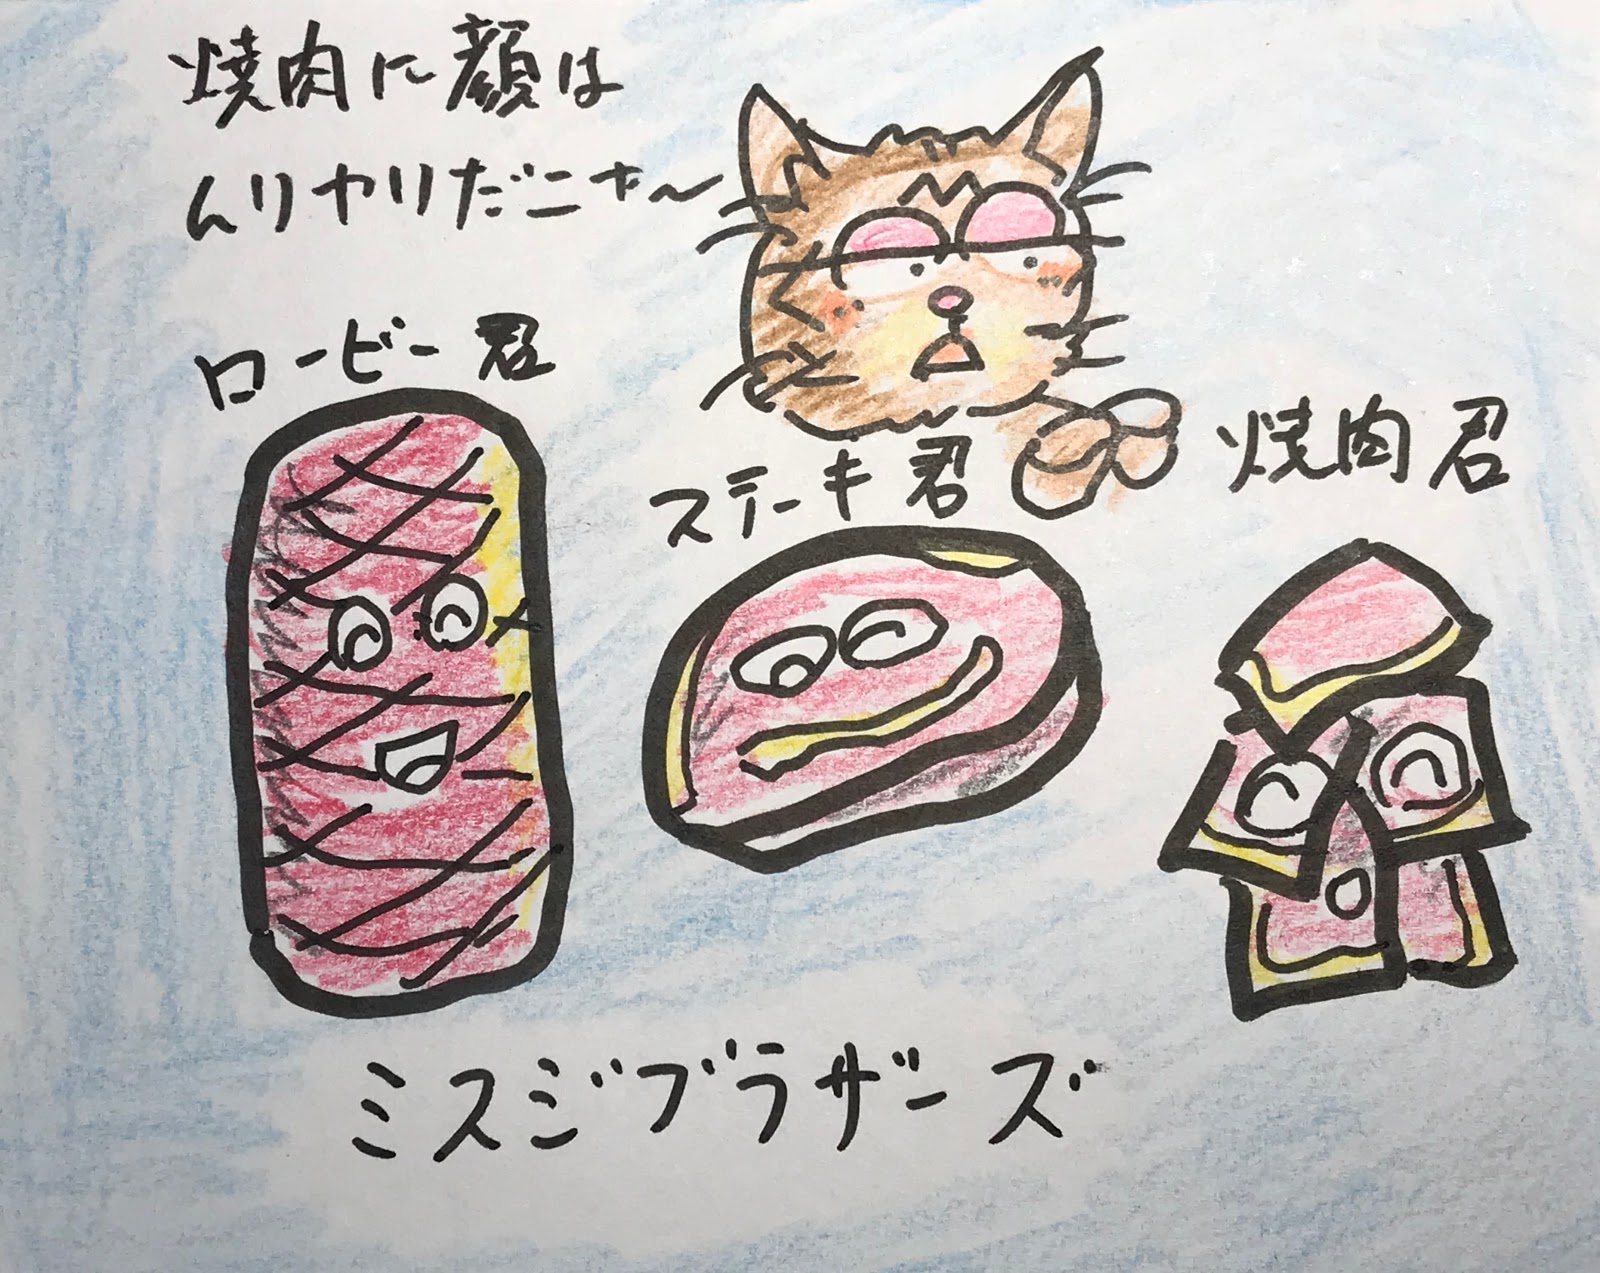 焼肉に顔は
ムリヤリだニャ〜
ロービー君
ステーキ君
焼肉君
ミスジブラザーズ